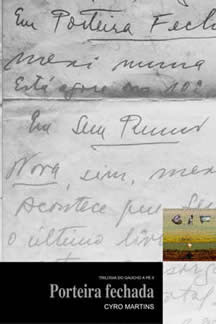 Em Porteira Fech
mexi numa
Está agora no 10º
Em Sem Rumo
Nova, sim, mex
Acontece que Se
o último livr
TRILOGIA DO GAÚCHO A PÉ II
Porteira fechada
CYRO MARTINS